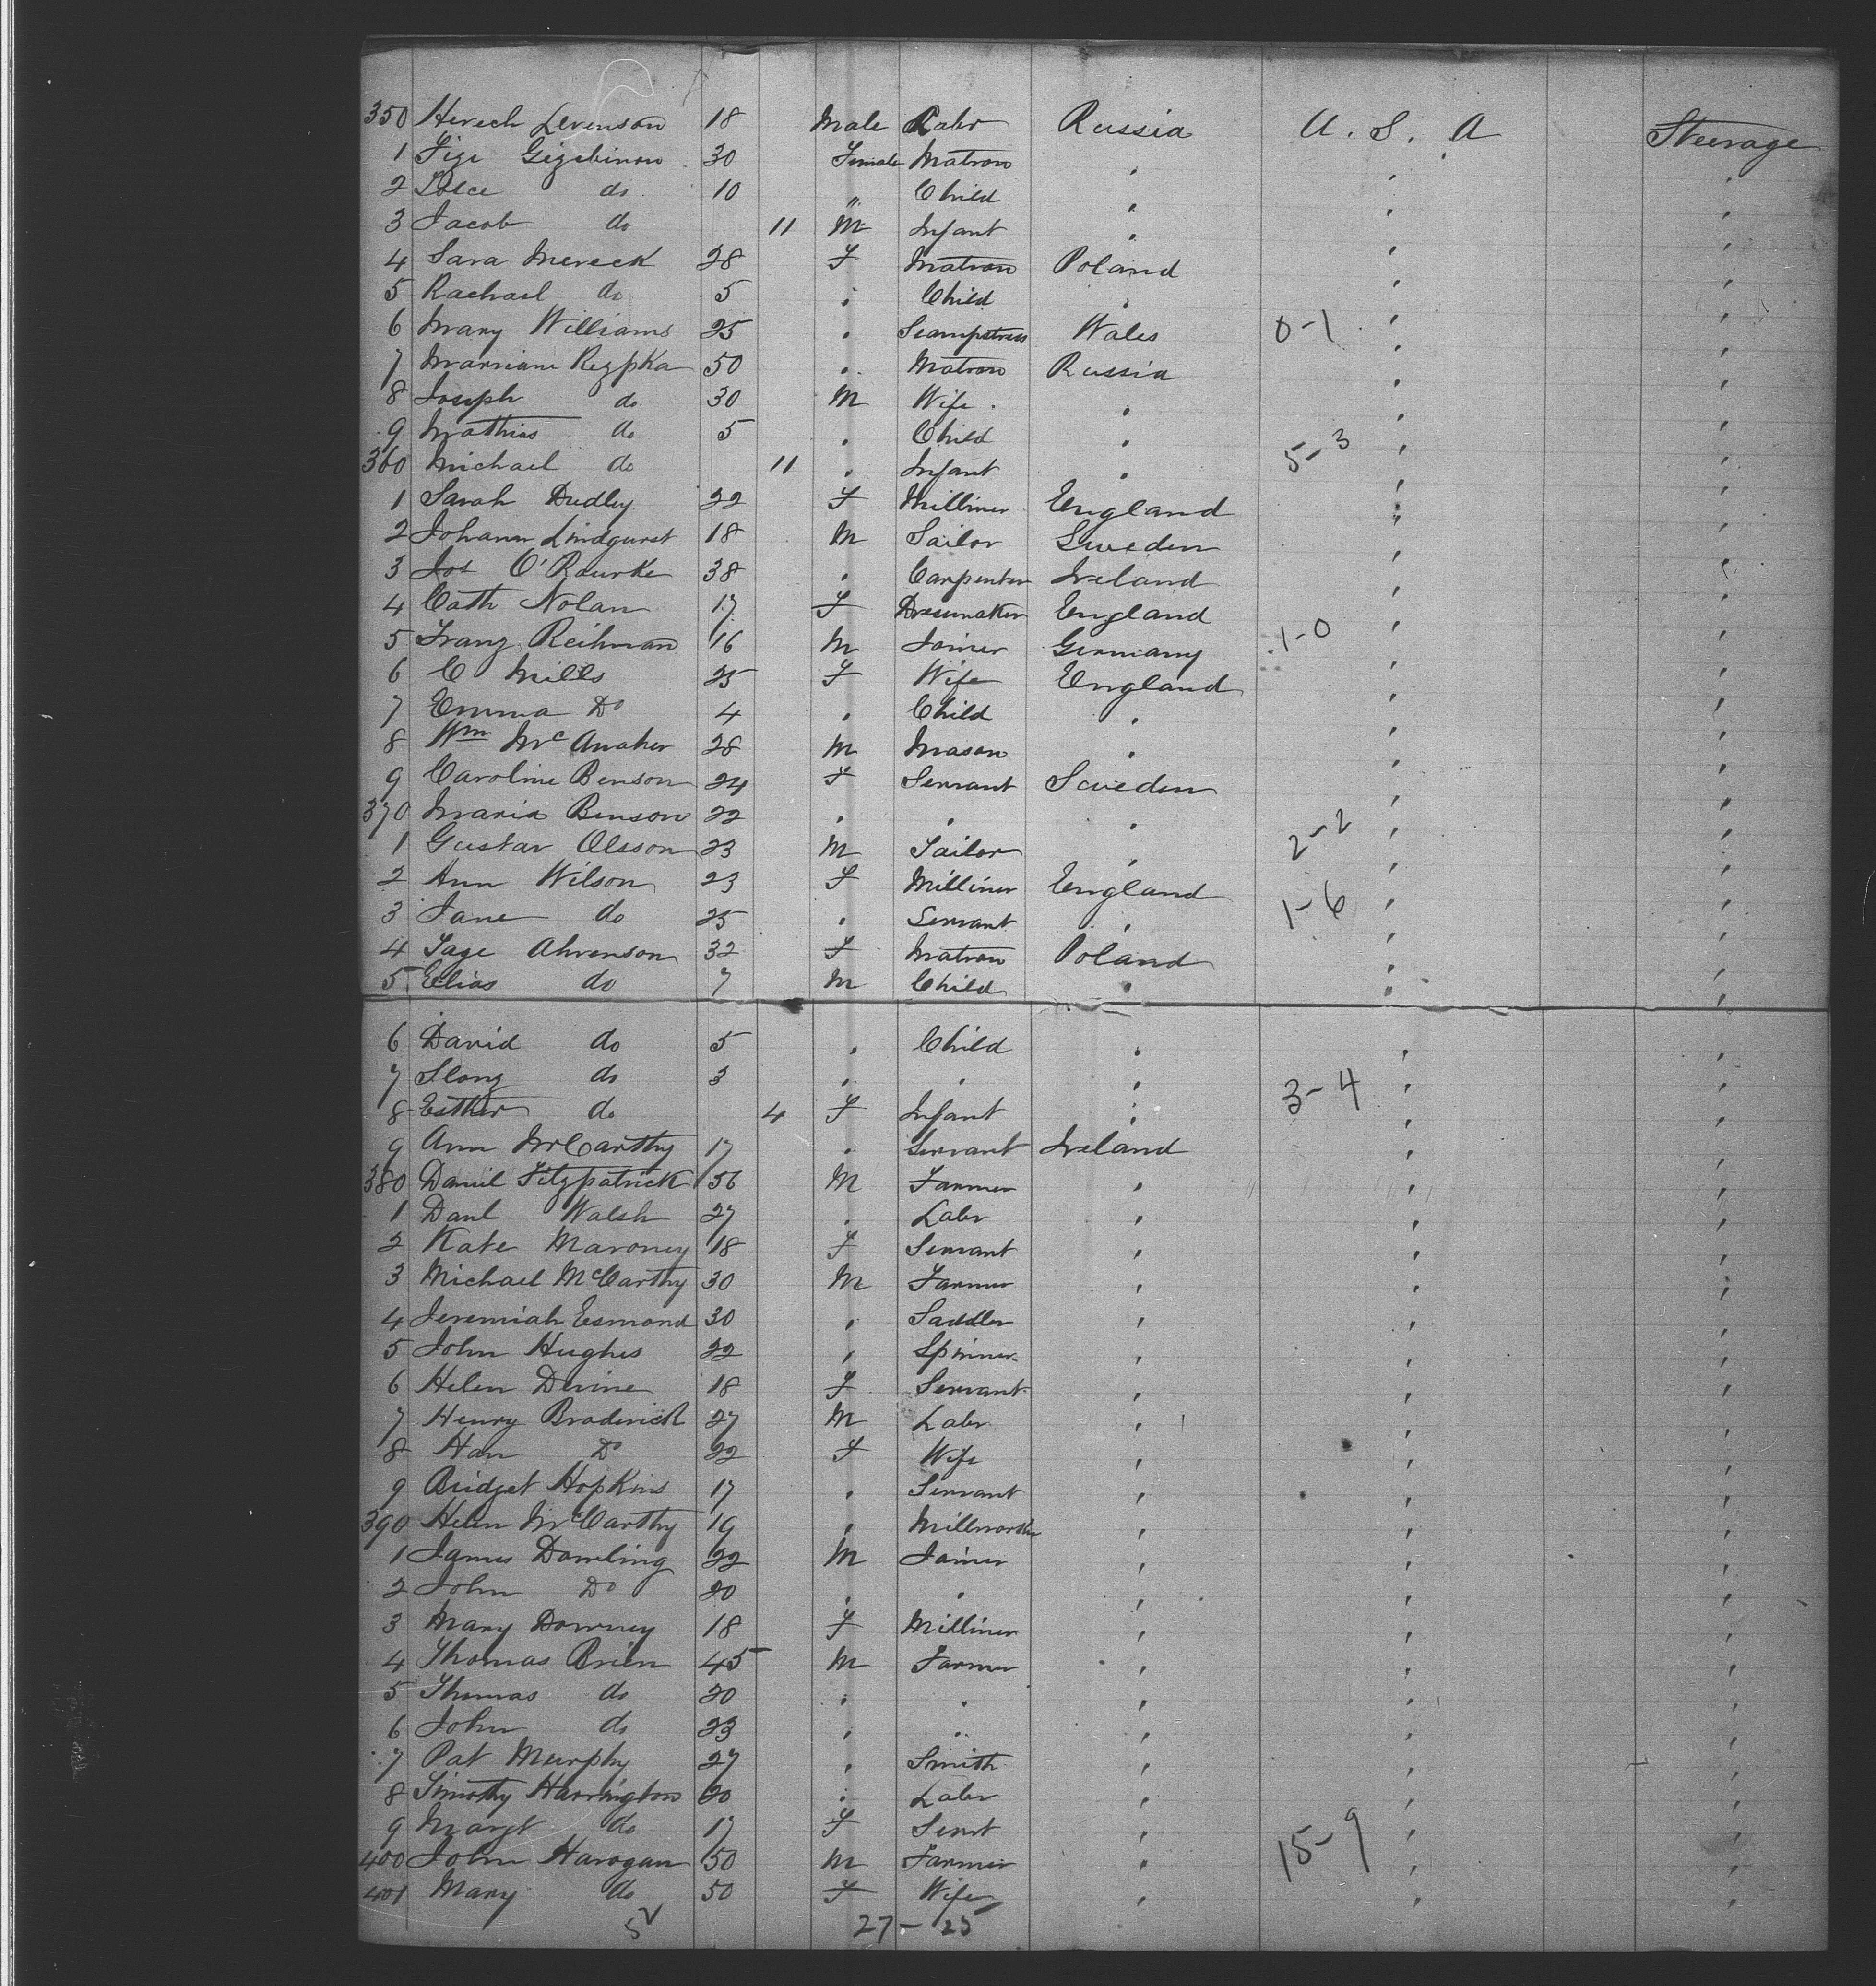 350 Herech Levenson 18 Male Labr Russia U. S. A Steerage
1 Fige 30 Female Matron "
2 do 10 " Child "
3 Jacob do 11 M Infant "
4 Sara Mereck 28 F Matron Poland "
5 Rachael do 5 " Child "
6 Mary Williams 25 " Seampstress Wales 0-1 "
7 Marriane Rezpka 50 " Matron Russia "
8 Joseph do 30 M Wife "
9 Mathias do 5 " Child " 5-3 "
360 Michael do 11 " Infant "
1 Sarah Dudley 22 F Milliner England "
2 Johann Lindqurst 18 M Sailor Sweden "
3 Jos O'Rourke 38 " Carpenter Ireland "
4 Cath Nolan 17 F Dressmaker England "
5 Franz Reihman 16 M Joiner Germany 1-0 "
6 C Mills 25 F Wife England "
7 Emma Do 4 " Child "
8 Wm McAnaher 28 M Mason "
9 Caroline Benson 24 F Servant Sweden "
370 Maria Benson 22 " " "
1 Gustav Olsson 23 M Tailor " 2-2 "
2 Ann Wilson 23 F Milliner England "
3 Jane do 25 " Servant " 1-6 "
4 Sage Ahrenson 32 F Matron Poland "
5 Elias do 7 M Child " "
6 David do 5 " Child " "
7 do 3 " " " 3-4 "
8 Esther do 4 F Infant " "
9 Ann McCarthy 17 " Servant Ireland "
380 Daniel Fitzpatrick 56 M Farmer " "
1 Danl Walsh 27 " Labr " "
2 Kate Maroney 18 F Servant " "
3 Michael McCarthy 30 M Farmer " "
4 Jeremiah Esmond 30 " Saddler " "
5 John Hughes 22 " Spinner " "
6 Helen Devine 18 F Servant " "
7 Henry Broderick 27 M Labr " "
8 Han Do 22 F Wife " "
9 Bridget Hopkins 17 " Servant " "
390 Helen McCarthy 19 " Millworker " "
1 James Dowling 22 M Joiner " "
2 John Do 20 " " " "
3 Mary Downey 18 F Milliner " "
4 Thomas Brien 45 M Farmer " "
5 Thomas do 20 " " " "
6 John do 23 " " " "
7 Pat Murphy 27 " Smith " "
8 Timothy Harrington 20 " Labr " "
9 Margt do 17 F Servt " 15-9 "
400 John Harogan 50 M Farmer " "
401 Mary do 50 F Wife " "
27-25